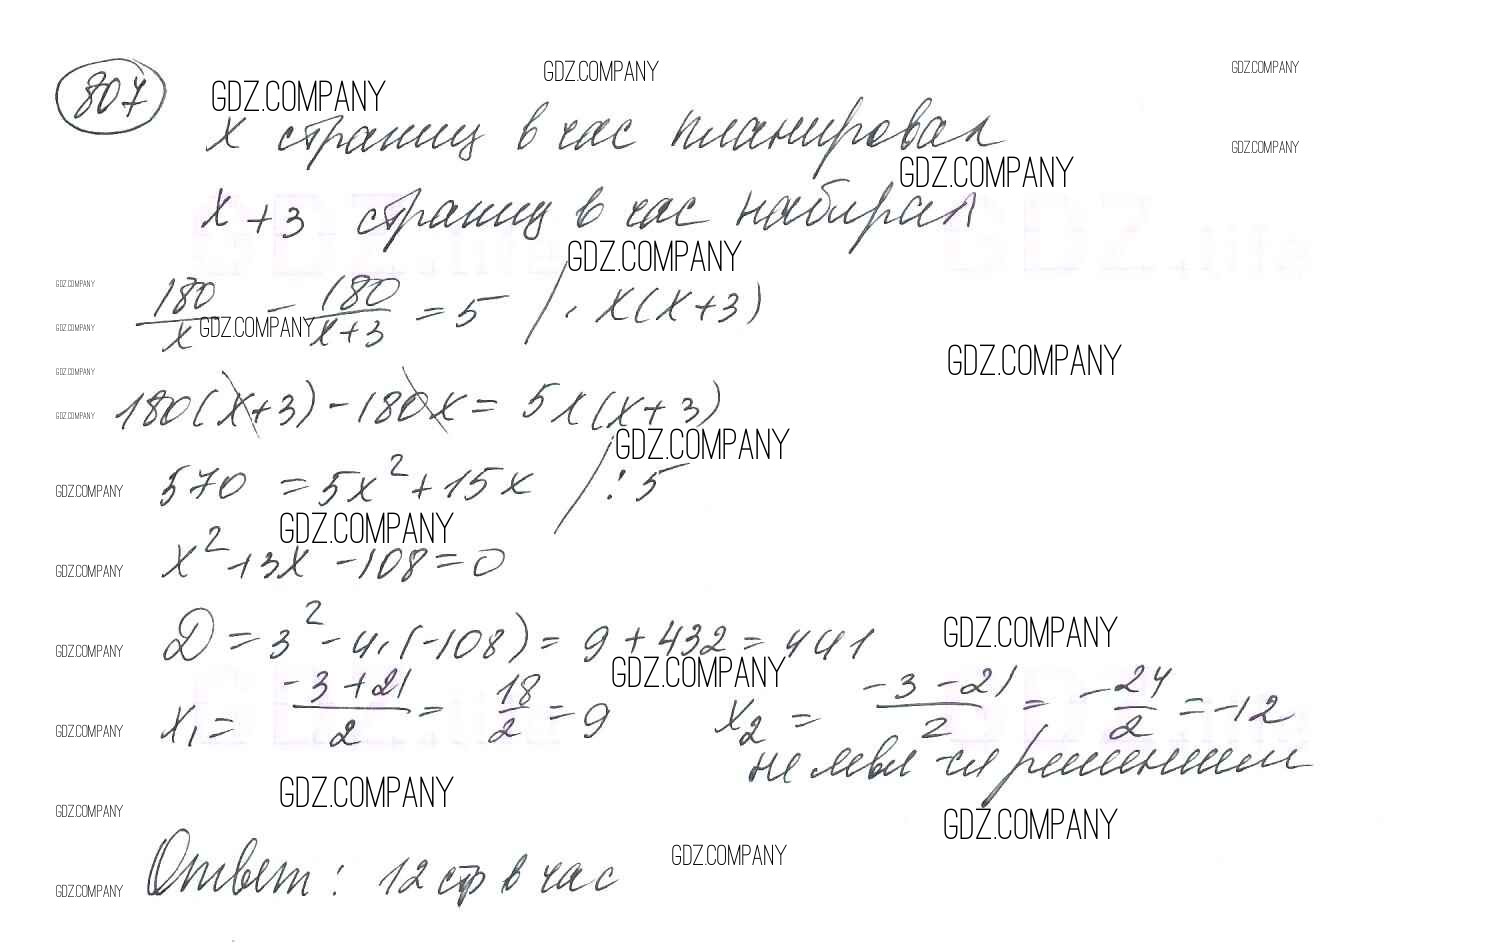 807
GDZ.COMPANY
GDZ.COMPANY
GDZ.COMPANY
x страниц в час планировал
GDZ.COMPANY
GDZ.COMPANY
x+3 страниц в час набирал
GDZ.COMPANY
GDZ.COMPANY
180/x - 180/(x+3) = 5 / · x(x+3)
GDZ.COMPANY
GDZ.COMPANY
GDZ.COMPANY
GDZ.COMPANY
GDZ.COMPANY
180(x+3) - 180x = 5x(x+3)
GDZ.COMPANY
GDZ.COMPANY
570 = 5x²+15x / : 5
GDZ.COMPANY
GDZ.COMPANY
x²+3x-108=0
GDZ.COMPANY
D = 3² - 4·(-108) = 9+432 = 441
GDZ.COMPANY
GDZ.COMPANY
GDZ.COMPANY
x₁ = (-3+21)/2 = 18/2 = 9 x₂ = (-3-21)/2 = -24/2 = -12
GDZ.COMPANY
не явл-ся решением
GDZ.COMPANY
GDZ.COMPANY
GDZ.COMPANY
GDZ.COMPANY
Ответ: 12 стр в час
GDZ.COMPANY